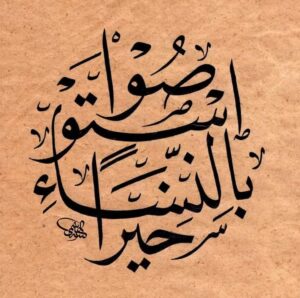 اِسْتَوْصُوا
بِالنِّسَاءِ
خَيْرًا